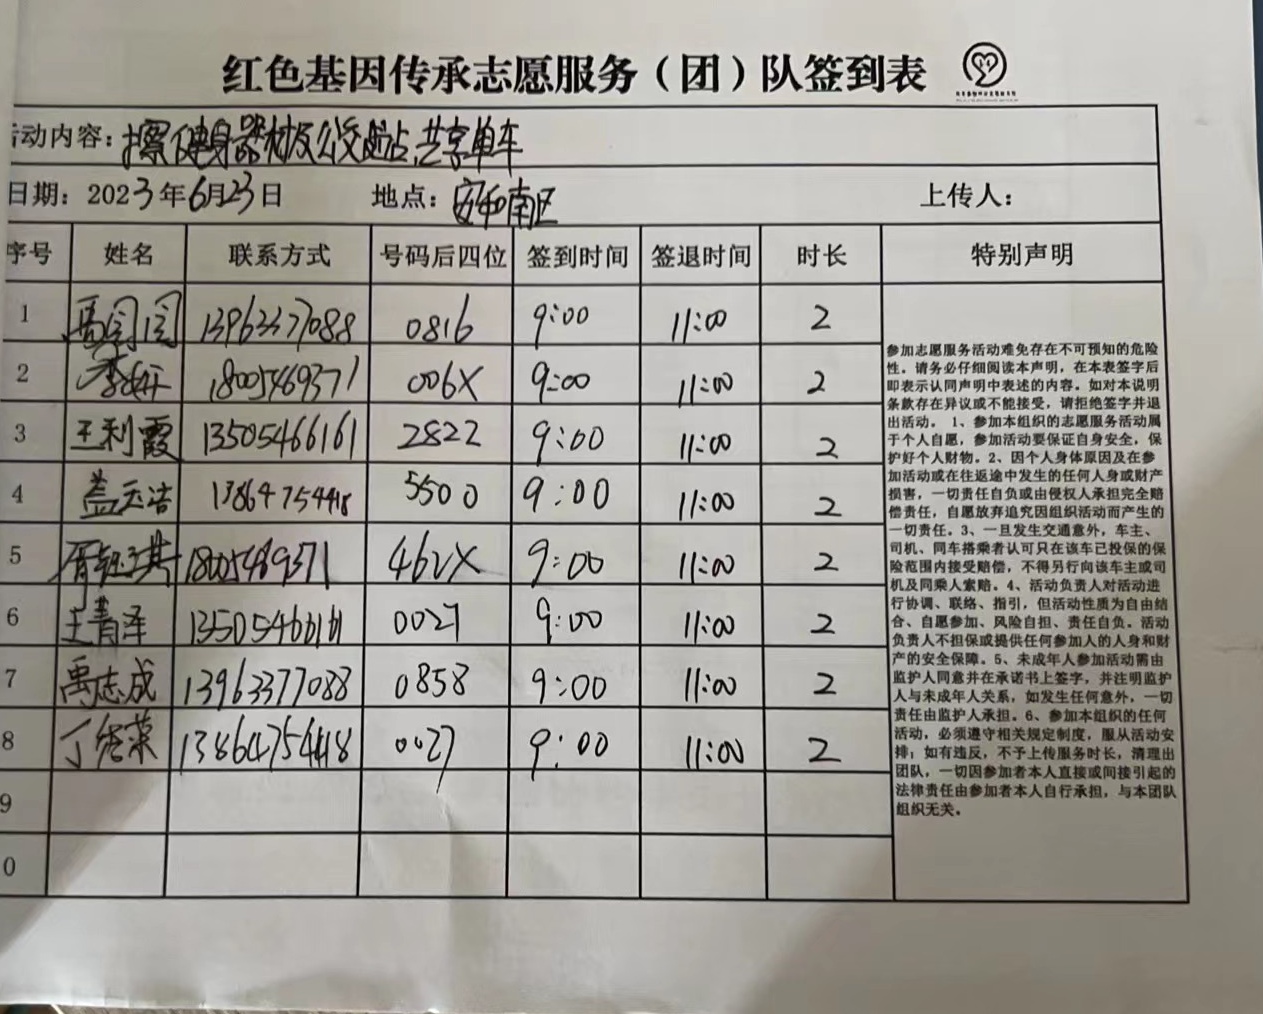 红色基因传承志愿服务（团）队签到表
活动内容：擦健身器材及公交站点、共享单车
日期：2023年6月23日 地点：安和南区 上传人：
序号 姓名 联系方式 号码后四位 签到时间 签退时间 时长 特别声明
1 闫闫 13963377088 0816 9:00 11:00 2
2 李妍 18005469371 006X 9:00 11:00 2
3 王利霞 13505466161 2822 9:00 11:00 2
4 盖玉洁 13864754418 5500 9:00 11:00 2
5 18005489371 462X 9:00 11:00 2
6 王青泽 13505466161 0027 9:00 11:00 2
7 禹志成 13963377088 0858 9:00 11:00 2
8 丁 13864754418 0027 9:00 11:00 2
9
0
参加志愿服务活动难免存在不可预知的危险
性。请务必仔细阅读本声明，在本表签字后
即表示认同声明中表述的内容。如对本说明
条款存在异议或不能接受，请拒绝签字并退
出活动。1、参加本组织的志愿服务活动属
于个人自愿，参加活动要保证自身安全，保
护好个人财物。2、因个人身体原因及在参
加活动或在往返途中发生的任何人身或财产
损害，一切责任自负或由侵权人承担完全赔
偿责任，自愿放弃追究因组织活动而产生的
一切责任。3、一旦发生交通意外，车主、
司机、同车搭乘者认可只在该车已投保的保
险范围内接受赔偿，不得另行向该车主或司
机及同乘人索赔。4、活动负责人对活动进
行协调、联络、指引，但活动性质为自由结
合、自愿参加、风险自担、责任自负。活动
负责人不担保或提供任何参加人的人身和财
产的安全保障。5、未成年人参加活动需由
监护人同意并在承诺书上签字，并注明监护
人与未成年人关系，如发生任何意外，一切
责任由监护人承担。6、参加本组织的任何
活动，必须遵守相关规定制度，服从活动安
排；如有违反，不予上传服务时长，清理出
团队，一切因参加者本人直接或间接引起的
法律责任由参加者本人自行承担，与本团队
组织无关。